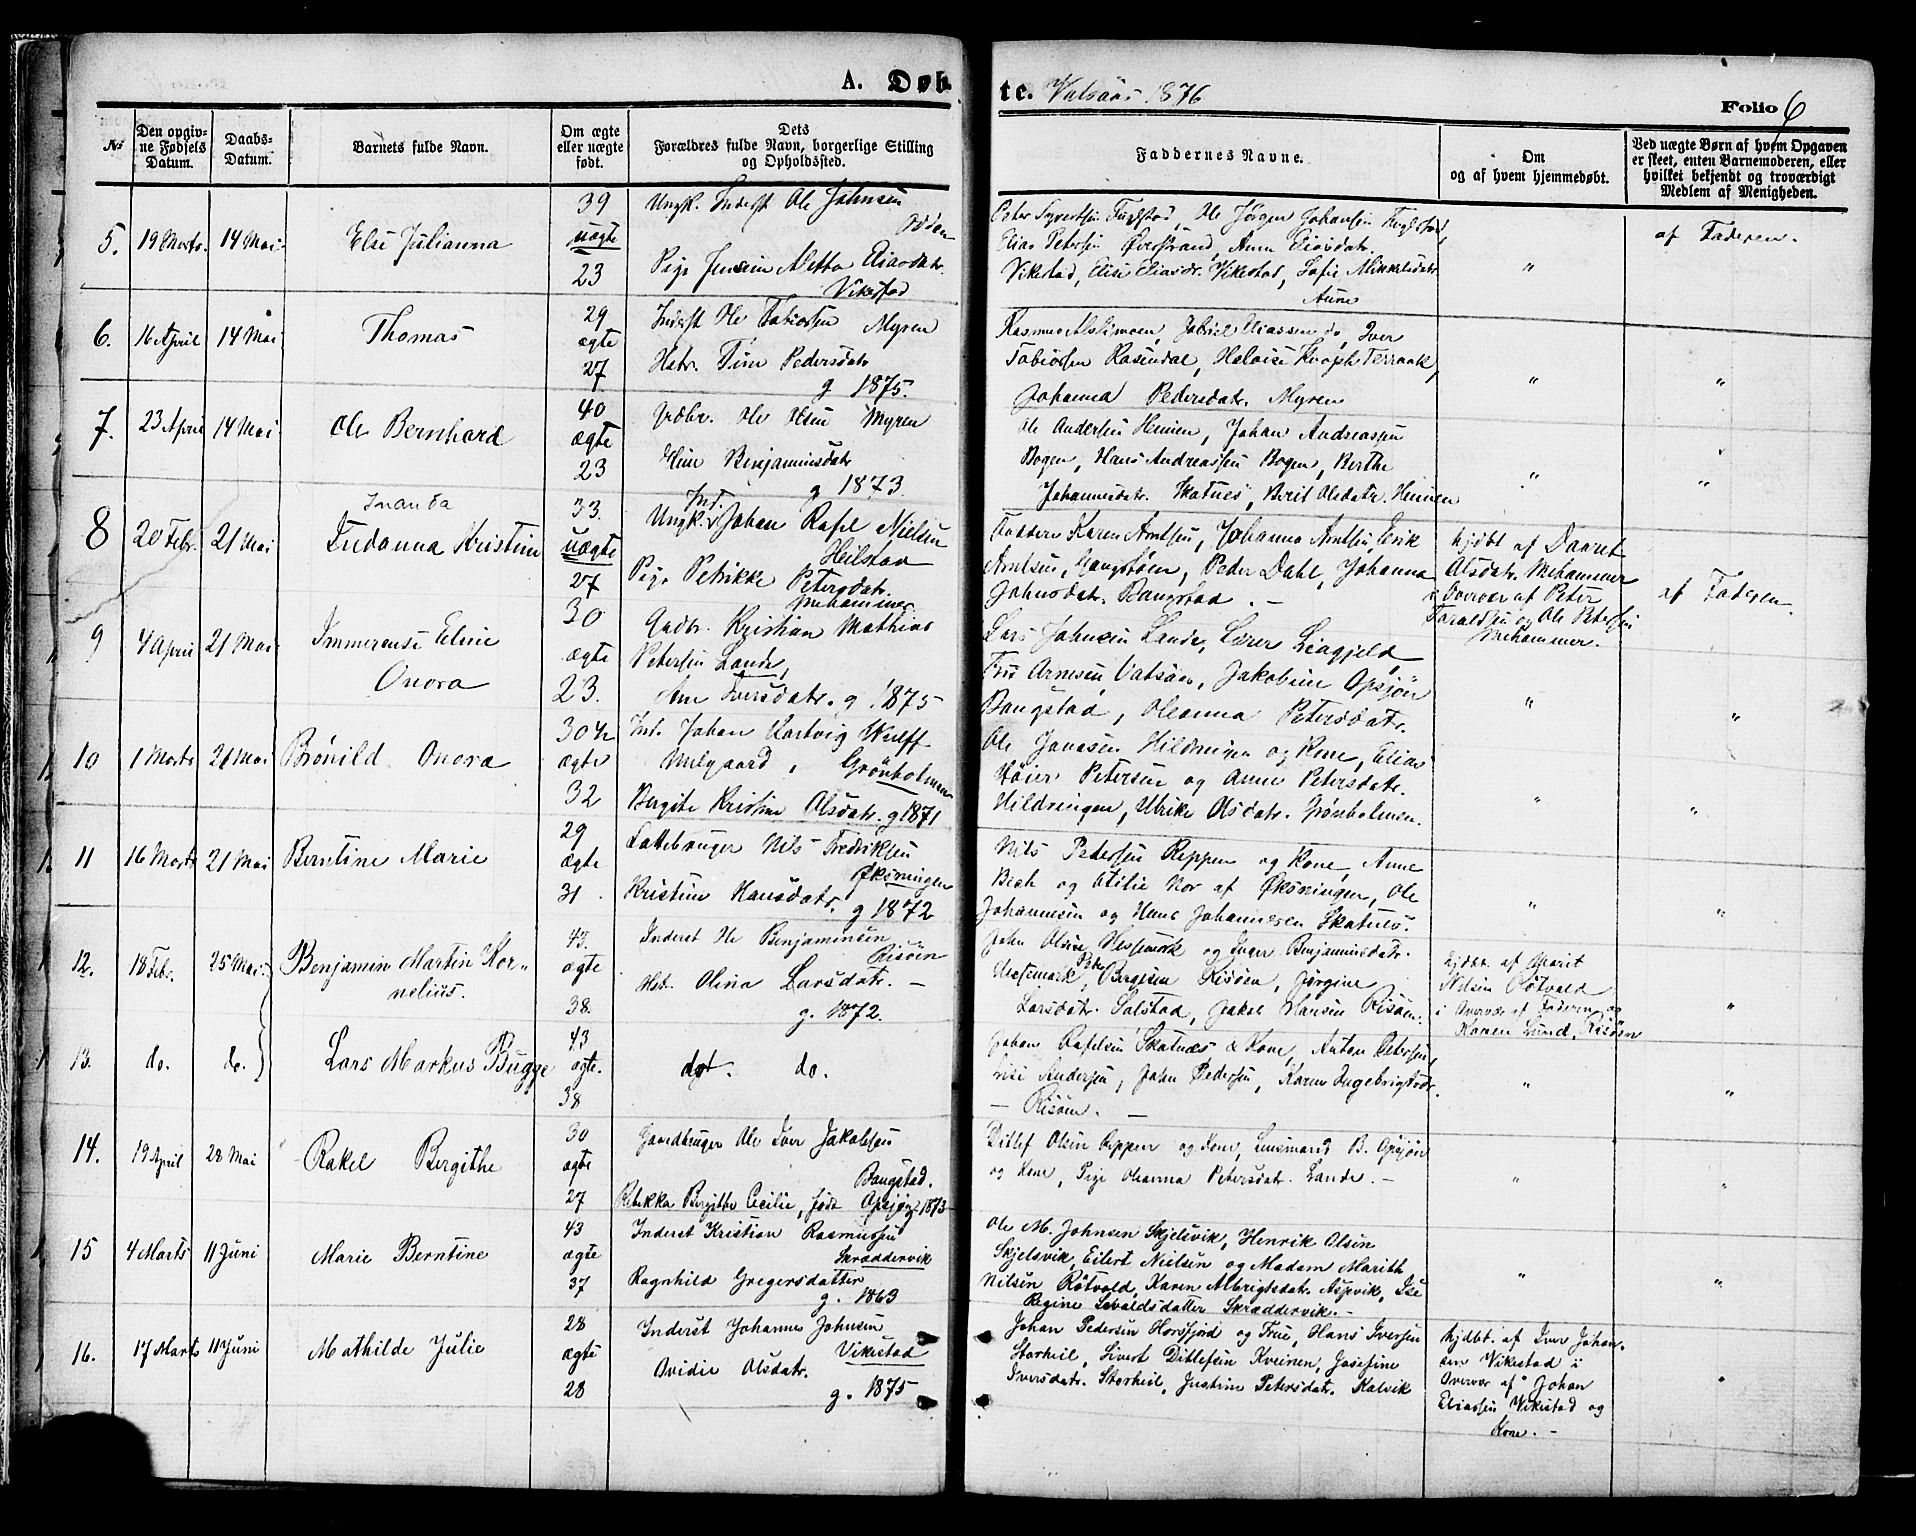 A. Døb
te. Vatsaas 1876
Folio 6
№
Den opgivne Fødsels Datum.
Daabs-Datum.
Barnets fulde Navn.
Om ægte eller uægte født.
Dets Forældres fulde Navn, borgerlige Stilling og Opholdssted.
Faddernes Navne.
Om og af hvem hjemmedøbt.
Ved uægte Børn af hvem Opgaven er skeet, enten Barnemoderen, eller hvilket bekjendt og troværdigt Medlem af Menigheden.
5. 19 Marts. 14 Mai. Else Julianna
39 uægte 23
Ungk. Inderst Ole Johnsen
Odden
Pige Jensin Aletta Eliasdatr.
Vikestad
Peter Syvertsen Fuglstad, Ole Jørgen Johansen Fuglstad,
Elias Petersen Øverstrand, Anne Eliasdatr.
Vikestad, Elise Eliasdr. Vikestad, Sofie Mikkelsdatr.
Aune
"
af Faderen.
6. 16 April 14 Mai Thomas
29 ægte 27
Inderst Ole Tobiassen Myren
Hstr. Fine Pedersdatr
g 1875.
Tobiassen Rosendal, Heloise Knoph Terraak,
Johanna Pedersdatr. Myren
" "
7. 23 April 14 Mai. Ole Bernhard
40 ægte 23
Grdbr. Ole Olsen Myren
Benjaminsdatr
g 1873.
Ole Andersen Heinen, Johan Andreassen
Bogen, Hans Andreassen Bogen, Berthe
Johannesdatr. Skatnes, Berit Olsdatr. Heinen
" "
8 20 Febr. 21 Mai
Inanda
Indanna Kristine
33. uægte 27
Ungk. Ind. Johan Rafel Nielsen
Heilstad
Pige Petrikke Petersdatr.
Mehammer.
Faddere Karen Arntsen, Johanna Arntsen, Erik
Arntsen, Gangstøen, Peder Dahl, Johanna
Johnsdatr. Bangstad. -
hjdbt af Daaret
Olsdatr. Mehammer
i Overvær af Peter
Faraldsen og Ole Petersen
Mehammer.
af Faderen.
9 4 April 21 Mai. Immerense Eline
Onora
30 ægte 23.
Grdbr. Kristian Mathias
Petersen Lande,
Ane Iversdatr. g. 1875
Lars Johnsen Lande, Lærer Liagjeld,
Fru Arnesen Vatsaas, Jakobine Opsjøn
Bangstad, Oleanna Petersdatr.
" "
10 1 Marts 21 Mai Brønild Onora
30 ½ ægte 32
Ind. Johan Hartvig Wulff
Milgaard, Grønholmen
Bergite Kristine Olsdatr. g 1871
Ole Jonassen Hildringen og Kone, Elias
Høier Petersen og Anne Petersdatr.
Hildringen, Ulrike Olsdatr. Grønholmen.
" "
11 16 Marts 21 Mai Berntine Marie
29 ægte 31.
Nils Fredriksen
Øksningen
Kristine Hansdatr. g 1872
Nils Petersen Reppen og Kone, Anne
Bech og Otilie Nor af Øksningen, Ole
Johannesen og Hans Johannesen Skatnes.
" "
12. 18 Febr. 25 Mai. Benjamin Martin Kor-
nelius.
43. ægte 38.
Inderst Ole Benjaminsen
Risøen
Hst. Olina Larsdatr. -
g. 1872.
John Olsen Hestmark og Inger Benjaminsdatr.
Hestmark, Petr. Bergesen Risøen, Jørgine
Larsdatr. Salstad, Jakob Hansen Risøen.
hjdbt. af Marit
Nilsen Røtvold
i Overvær af Faderen og
Karen Lund, Risøen
"
13. do. do. Lars Markus Bugge
43 ægte. 38
dgt. do.
Johan Rafelsen Skatnæs & Kone, Anton Petersen,
Andersen, John Pedersen, Karen Ingebrigtsdr.
- Risøen. -
" "
14. 19 April 28 Mai Rakel Bergithe
30 ægte 27
Gaardbruger Ole Iver Jakobsen
Bangstad.
Rebekka Bergitte Cecilie, født Opsjøn 1873
Ditlef Olsen Reppen og Kone, Lensmand B. Opsjøn
og Kone, Pige Oleanna Petersdatr. Lande. -
" "
15 4 Marts 11 Juni Marie Berntine
43 ægte 37
Inderst Kristian Rasmussen
Skræddervik
Ragnhild Gregersdatter
g. 1863
Ole M. Johnsen Skjelsvik, Henrik Olsen
Skjelsvik, Eilert Nielsen og Madam Marith
Nilsen Røtvold, Karen Albrigtsdatr. Aspvik, Ise
Regine Sevaldsdatter Skræddervik. -
" "
16. 17 Marts 11 Juni Mathilde Julie
28 ægte 28
Inderst Johannes Johnsen
Vikestad
Ovidie Olsdatr.
g. 1875
Johan Pedersen Horsfjord og Frue, Hans Iversen
Storheil, Sivert Ditlefsen Kveinen, Josefine
Iversdatr. Storheil, Justine Petersdatr. Kalvik
hjdbt. af Iver Johan-
sen Vikestad i
Overvær af Johan
Eliassen Vikestad og
Kone. -
"